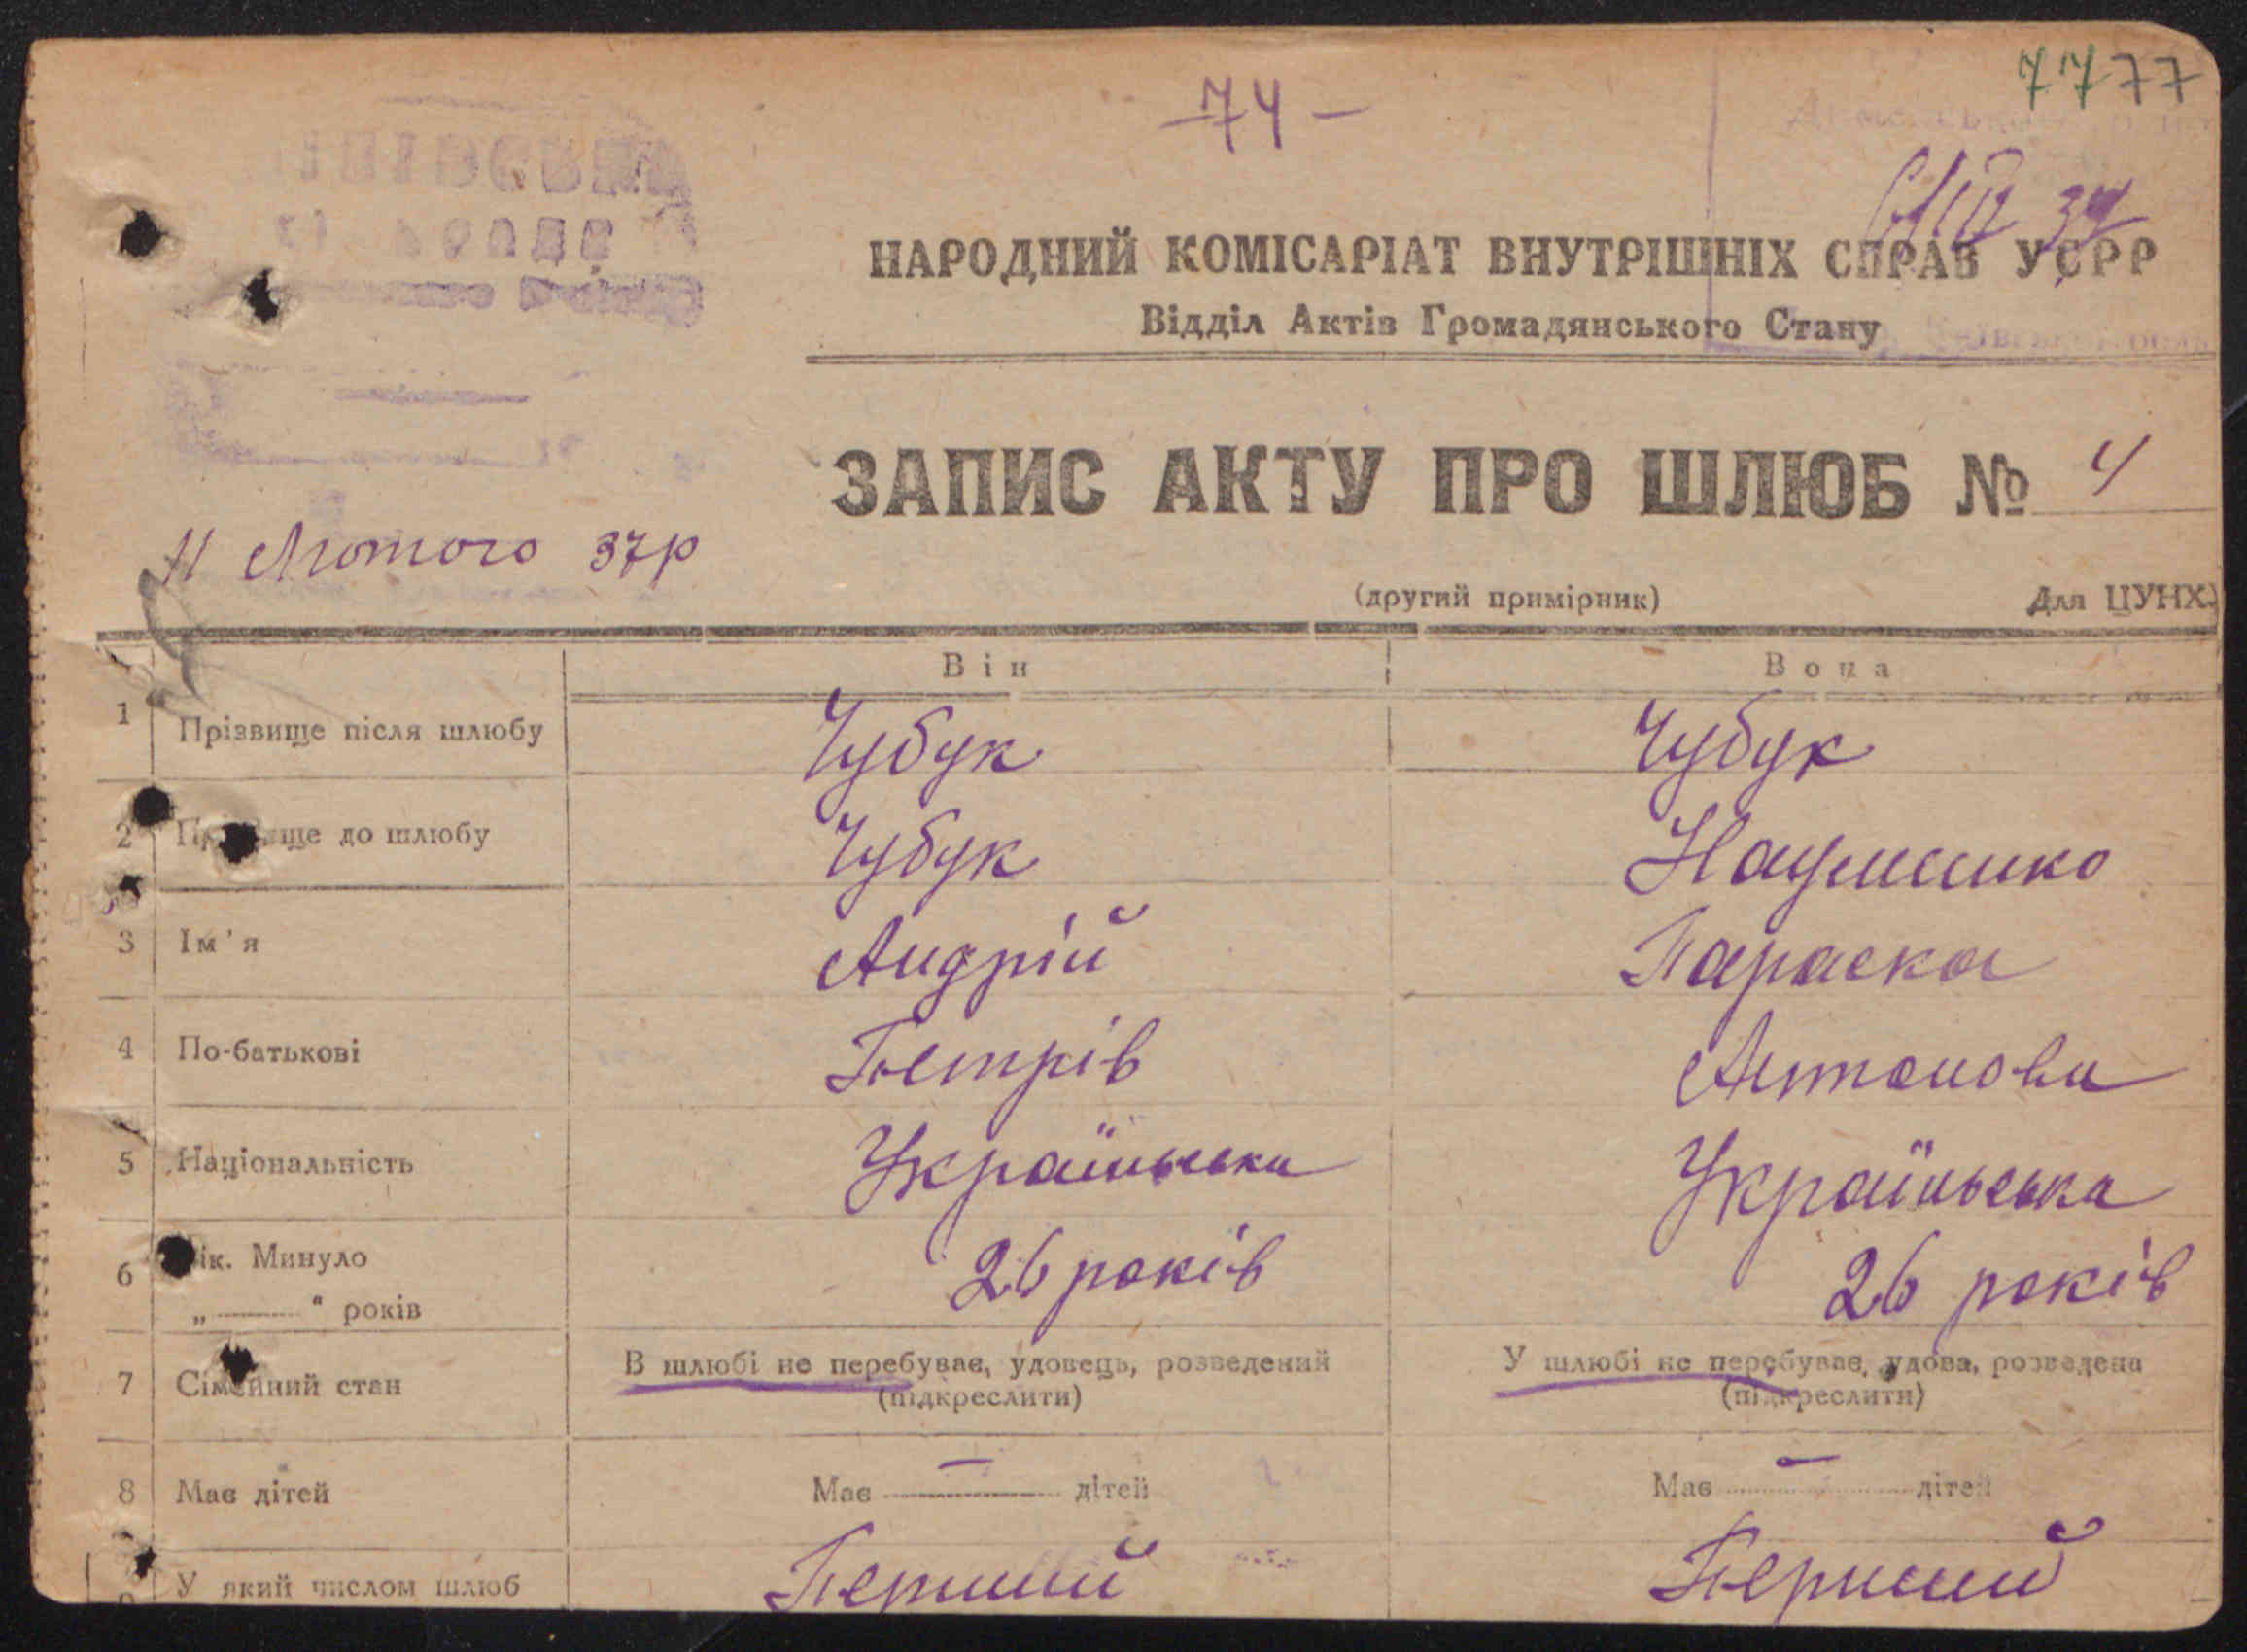 77 77
-74-
НАРОДНИЙ КОМІСАРІАТ ВНУТРІШНІХ СПРАВ УСРР
Відділ Актів Громадянського Стану
ЗАПИС АКТУ ПРО ШЛЮБ № 4
11 Лютого 37р
(другий примірник) Для ЦУНХ)
Він Вона
1 Прізвище після шлюбу Чубук Чубук
2 ще до шлюбу Чубук Науменко
3 Ім'я Андрій Параска
4 По-батькові Петрів Антонови
5 Національність Українська Українська
6 ік. Минуло 26 років 26 років
„ “ років
7 Сімейний стан В шлюбі не перебуває, удовець, розведений У шлюбі не перебуває, удова, розведена
(підкреслити) (підкреслити)
8 Має дітей Має — дітей Має — дітей
У який числом шлюб Перший Перший